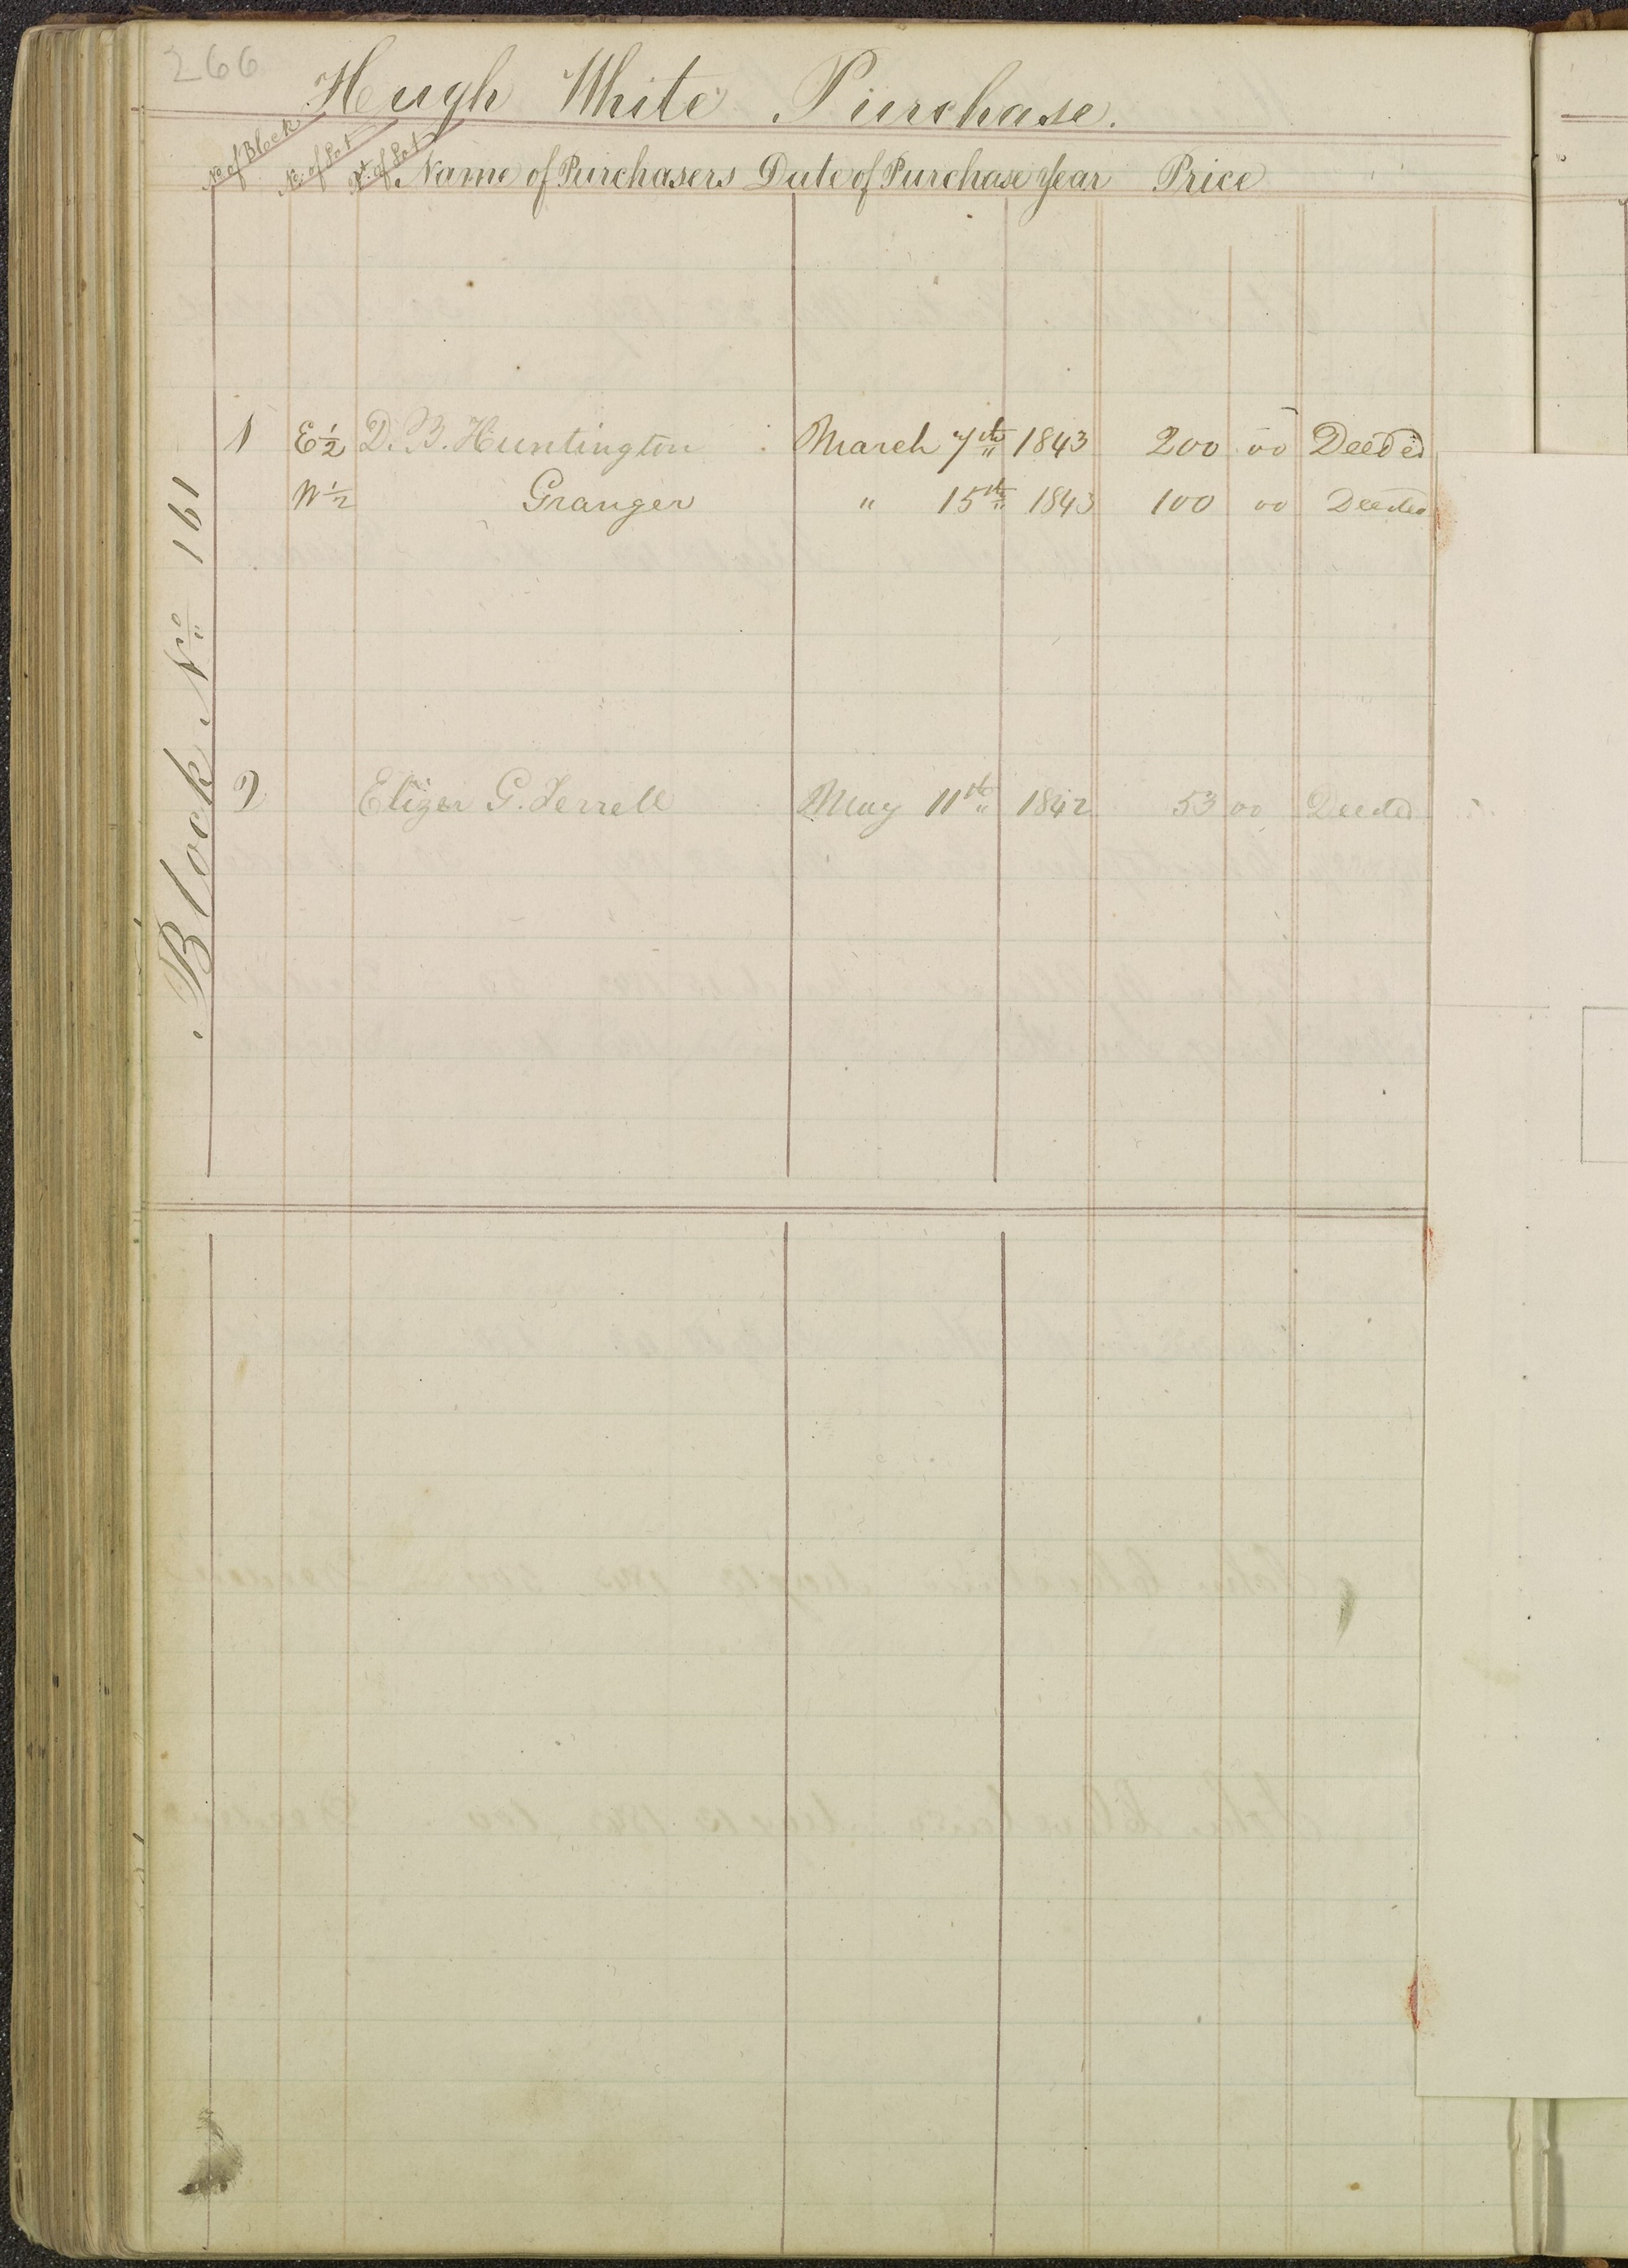 266
Hugh White Purchase.
No of Block No. of Lot Pt. of Lot Name of Purchasers Date of Purchase Year Price
Block No 161
1 E ½ D. B. Huntington March 7th 1843 200 00 Deeded
W ½ Granger " 15th 1843 100 00 Deeded
2 Elizer G. Terrell May 11th 1842 53 00 Deeded